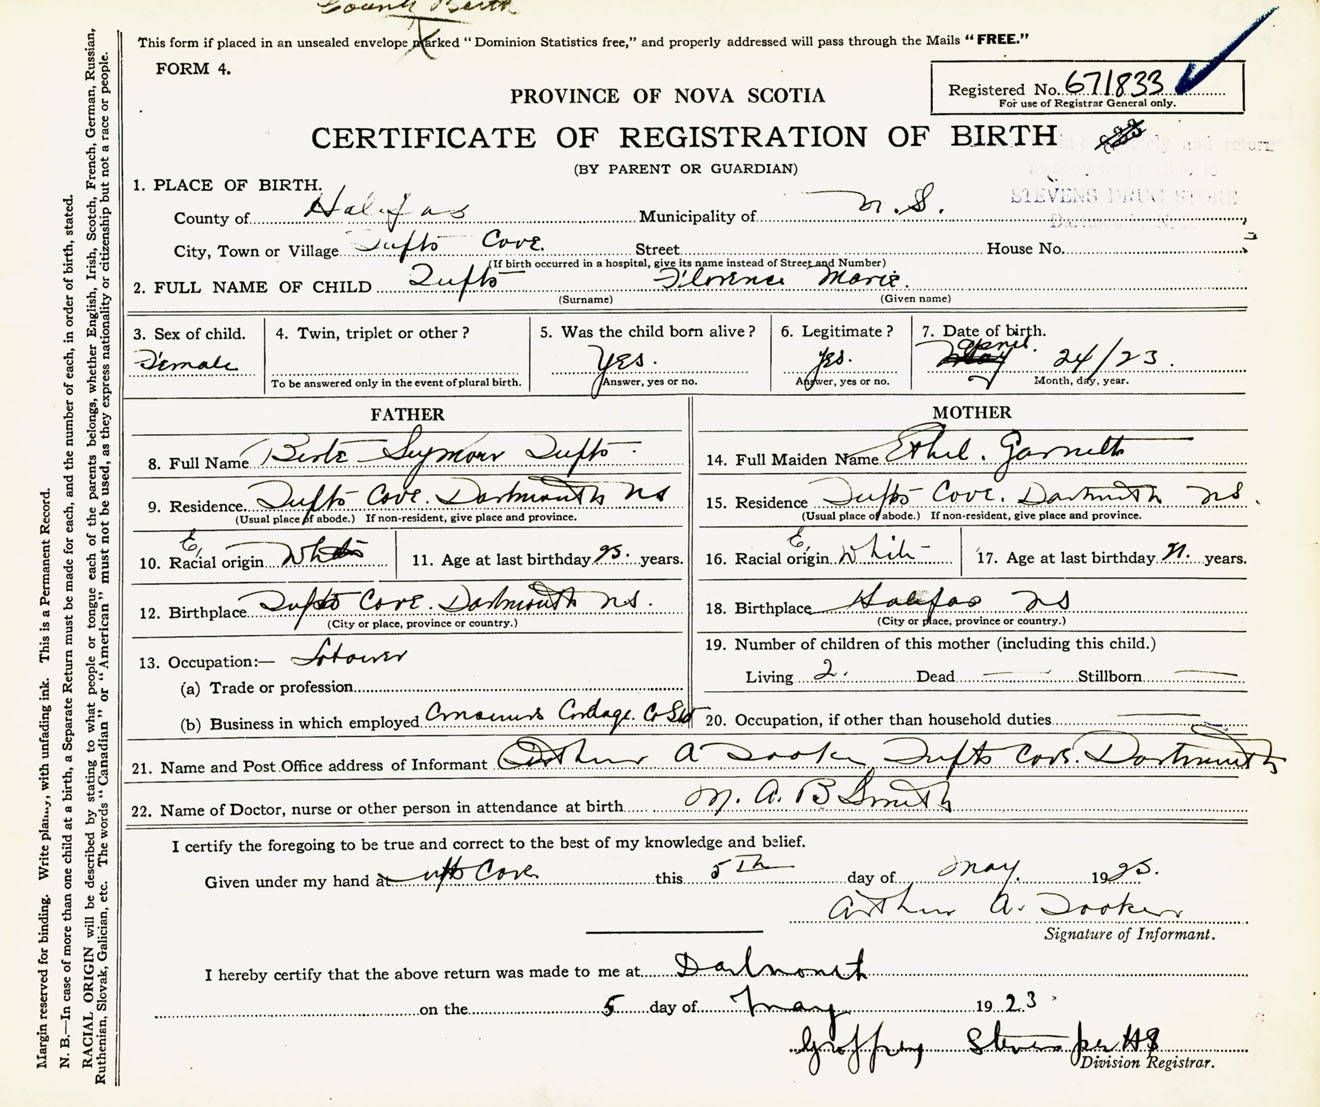 County Birth
This form if placed in an unsealed envelope marked "Dominion Statistics free," and properly addressed will pass through the Mails "FREE."
FORM 4.
Registered No. 671833
For use of Registrar General only.
PROVINCE OF NOVA SCOTIA
CERTIFICATE OF REGISTRATION OF BIRTH
(BY PARENT OR GUARDIAN)
STEVENS DRUG STORE
Dartmouth, N.S.
1. PLACE OF BIRTH.
County of Halifax Municipality of N.S.
City, Town or Village Tufts Cove. Street House No.
(If birth occurred in a hospital, give its name instead of Street and Number)
2. FULL NAME OF CHILD Tufts Florence Marie.
(Surname) (Given name)
3. Sex of child. 4. Twin, triplet or other? 5. Was the child born alive? 6. Legitimate? 7. Date of birth.
Female Yes. Yes. April 24/23.
To be answered only in the event of plural birth. Answer, yes or no. Answer, yes or no. Month, day, year.
FATHER MOTHER
8. Full Name Seymour Tufts. 14. Full Maiden Name Ethel. Garnett
9. Residence Tufts Cove. Dartmouth NS 15. Residence Tufts Cove. Dartmouth NS.
(Usual place of abode.) If non-resident, give place and province. (Usual place of abode.) If non-resident, give place and province.
10. Racial origin E. White 11. Age at last birthday 25. years. 16. Racial origin E. White 17. Age at last birthday 21. years.
12. Birthplace Tufts Cove. Dartmouth NS. 18. Birthplace Halifax NS
(City or place, province or country.) (City or place, province or country.)
13. Occupation:— 19. Number of children of this mother (including this child.)
(a) Trade or profession Living 2. Dead — Stillborn —
(b) Business in which employed Consumers Cordage Co Ltd 20. Occupation, if other than household duties —
21. Name and Post Office address of Informant Arthur A Tooker Tufts Cove. Dartmouth
22. Name of Doctor, nurse or other person in attendance at birth M. A. B Smith
I certify the foregoing to be true and correct to the best of my knowledge and belief.
Given under my hand at Tufts Cove this 5th day of May. 1923.
Arthur A. Tooker
Signature of Informant.
I hereby certify that the above return was made to me at Dartmouth
on the 5 day of May 1923.
Geoffrey Stevens per HS
Division Registrar.
Margin reserved for binding. Write plainly, with unfading ink. This is a Permanent Record.
N. B.—In case of more than one child at a birth, a Separate Return must be made for each, and the number of each, in order of birth, stated.
RACIAL ORIGIN will be described by stating to what people or tongue each of the parents belongs, whether English, Irish, Scotch, French, German, Russian,
Ruthenian, Slovak, Galician, etc. The words "Canadian" or "American" must not be used, as they express nationality or citizenship but not a race or people.